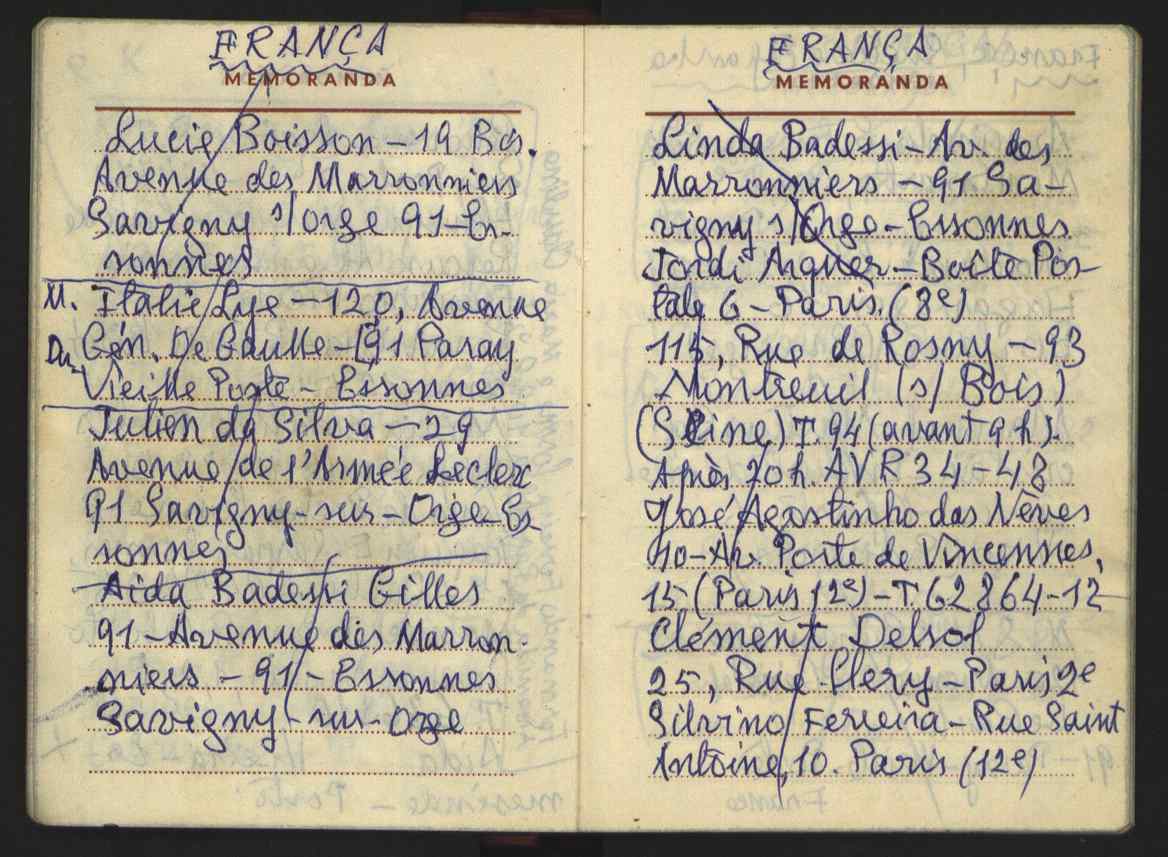 FRANÇA
MEMORANDA
Lucie Boisson – 19 Bis.
Avenue des Marronniers
Savigny s/Orge 91 – Es-
sonnes
M. Italie Lye – 120, Avenue
Du Gén. De Gaulle – 91 Paray
Vieille Poste – Essonnes
Julien da Silva – 29
Avenue de l'Armée Leclerc
91 Savigny-sur-Orge – Es
sonnes
Aida Badessi Gilles
91 – Avenue des Marron-
niers – 91 – Essonnes
Savigny-sur-Orge
FRANÇA
MEMORANDA
Linda Badessi – Av. des
Marronniers – 91 Sa-
vigny s/Orge – Essonnes
Jordi Arquer – Boîte Pos-
tale 6 – Paris. (8e)
115, Rue de Rosny – 93
Montreuil (s/ Bois)
(Seine) T. 94 (avant 9 h).
Après 20 h. AVR 34-48
José Agostinho das Nèves
40 – Av. Porte de Vincennes,
15 (Paris 12e) – T 62864-12
Clément Delsol
25, Rue Clery – Paris 2e
Silvino Ferreira – Rue Saint
Antoine, 10. Paris (12e)